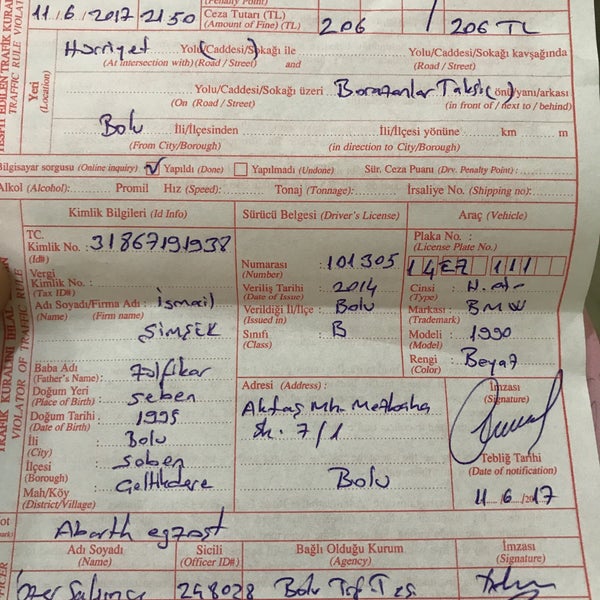 (Penalty Point)
11/6/2017 2150 Ceza Tutarı (TL) (Amount of Fine) (TL) 206 / 206 TL
Hürriyet Yolu/Caddesi/Sokağı ile Yolu/Caddesi/Sokağı kavşağında
(At intersection with) (Road / Street) (Road / Street)
Yeri (Location)
Yolu/Caddesi/Sokağı üzeri Borazanlar Taksi önü/yanı/arkası
On (Road / Street) (in front of / next to / behind)
Bolu İli/İlçesinden İli/İlçesi yönüne km m
(From City/Borough) (in direction to City/Borough)
Bilgisayar sorgusu (Online inquiry) Yapıldı (Done) Yapılmadı (Undone) Sür. Ceza Puanı (Drv. Penalty Point) :
Alkol (Alcohol): Promil Hız (Speed): Tonaj (Tonnage): İrsaliye No. (Shipping no):
Kimlik Bilgileri (Id Info) Sürücü Belgesi (Driver's License) Araç (Vehicle)
TC. Kimlik No. : 31867191938
(Id#)
Vergi Kimlik No. :
(Tax ID#)
Adı Soyadı/Firma Adı : İsmail
(Name) (Firm name)
ŞİMŞEK
Baba Adı
(Father's Name) : Zülfikar
Doğum Yeri
(Place of Birth) : Seben
Doğum Tarihi : 1995
(Date of Birth)
İli : Bolu
(City)
İlçesi : Seben
(Borough)
Mah/Köy :
(District/Village)
Numarası : 101305
(Number)
Veriliş Tarihi : 2014
(Date of Issue)
Verildiği İl/İlçe : Bolu
(Issued in)
Sınıfı : B
(Class)
Plaka No. :
(License Plate No.)
111
Cinsi :
(Type)
Markası : BMW
(Trademark)
Modeli : 1990
(Model)
Rengi : Beyaz
(Color)
Adresi (Address) :
Aktaş Mh.
Sk. 7/1
Bolu
İmzası
(Signature)
Tebliğ Tarihi
(Date of notification)
11/6/2017
Abarth egzost
Adı Soyadı Sicili Bağlı Olduğu Kurum İmzası
(Name) (Officer ID#) (Agency) (Signature)
248028 Bolu